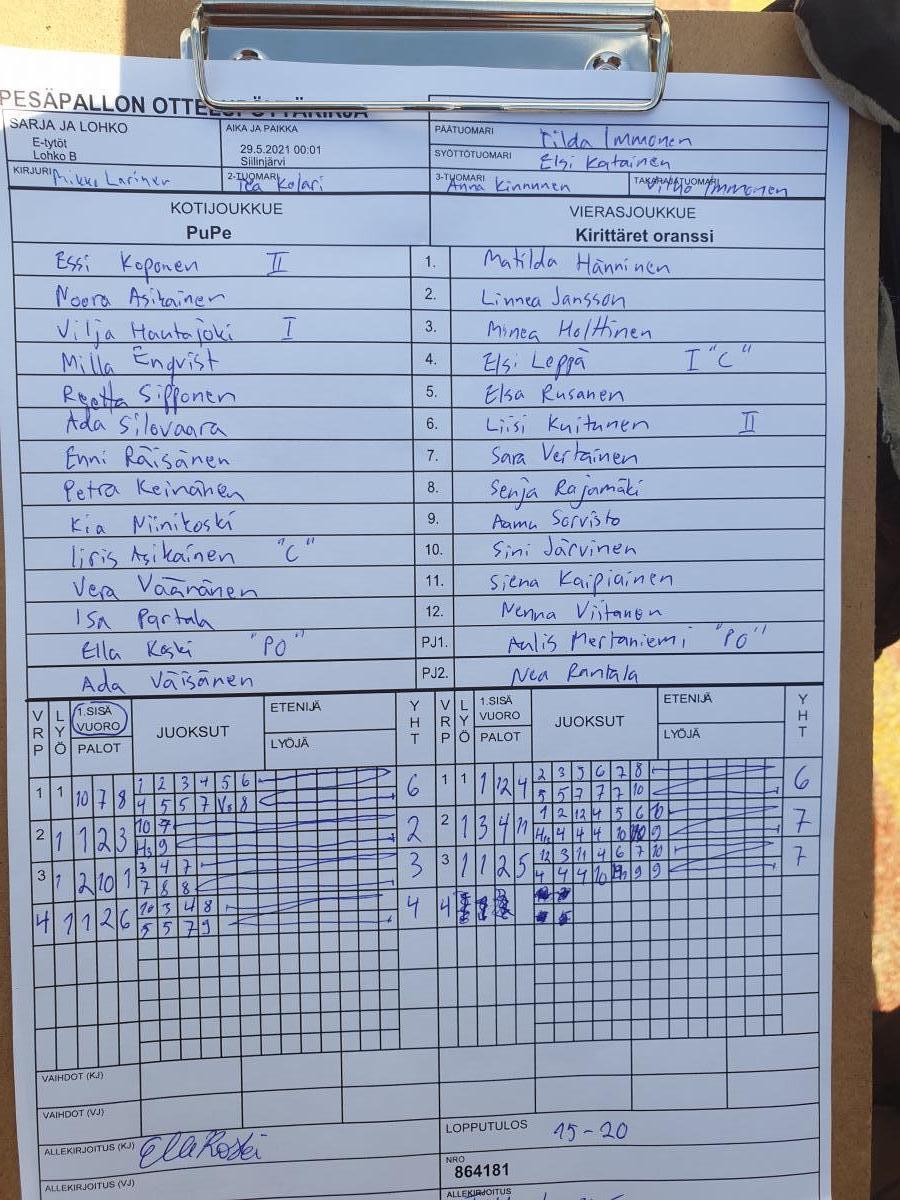 PESÄPALLON OTTELUPÖYTÄKIRJA
SARJA JA LOHKO
E-tytöt
Lohko B
AIKA JA PAIKKA
29.5.2021 00:01
Siilinjärvi
PÄÄTUOMARI Tilda Immonen
SYÖTTÖTUOMARI Elsi Katainen
KIRJURI Mikko Larinen
2-TUOMARI Tea Kolari
3-TUOMARI Anna Kinnunen
TAKARAJATUOMARI Vilho Immonen
KOTIJOUKKUE
PuPe
VIERASJOUKKUE
Kirittäret oranssi
Essi Koponen II 1. Matilda Hänninen
Noora Asikainen 2. Linnea Jansson
Vilja Hautajoki I 3. Minea Holttinen
Milla Enqvist 4. Elsi Leppä I "C"
Reetta Sipponen 5. Elsa Rusanen
Ada Silovaara 6. Liisi Kuitunen II
Enni Räisänen 7. Sara Vertainen
Petra Keinänen 8. Senja Rajamäki
Kia Niinikoski 9. Aamu Sorvisto
Iiris Asikainen "C" 10. Sini Järvinen
Vera Väänänen 11. Siena Kaipiainen
Isa Partala 12. Nenna Viitanen
Ella Koski "PO" PJ1. Aulis Mertaniemi "PO"
Ada Väisänen PJ2. Nea Rantala
VRP LYÖ 1.SISÄ VUORO PALOT JUOKSUT ETENIJÄ LYÖJÄ YHT
VRP LYÖ 1.SISÄ VUORO PALOT JUOKSUT ETENIJÄ LYÖJÄ YHT
1 1 10 7 8 1 2 3 4 5 6 6
4 5 5 7 8
1 1 1 12 4 2 3 5 6 7 8 6
5 5 7 7 7 10
2 1 1 2 3 10 7 2
9
2 1 3 4 11 1 2 12 4 5 6 10 7
4 4 4 10 9
3 1 2 10 1 3 4 7 3
7 8 8
3 1 1 2 5 12 3 11 4 6 7 10 7
4 4 4 10 9 9
4 1 1 2 6 10 3 4 8 4
5 5 7 9
4
VAIHDOT (KJ)
VAIHDOT (VJ)
ALLEKIRJOITUS (KJ) Ella Koski
LOPPUTULOS 15-20
ALLEKIRJOITUS (VJ)
NRO
864181
ALLEKIRJOITUS